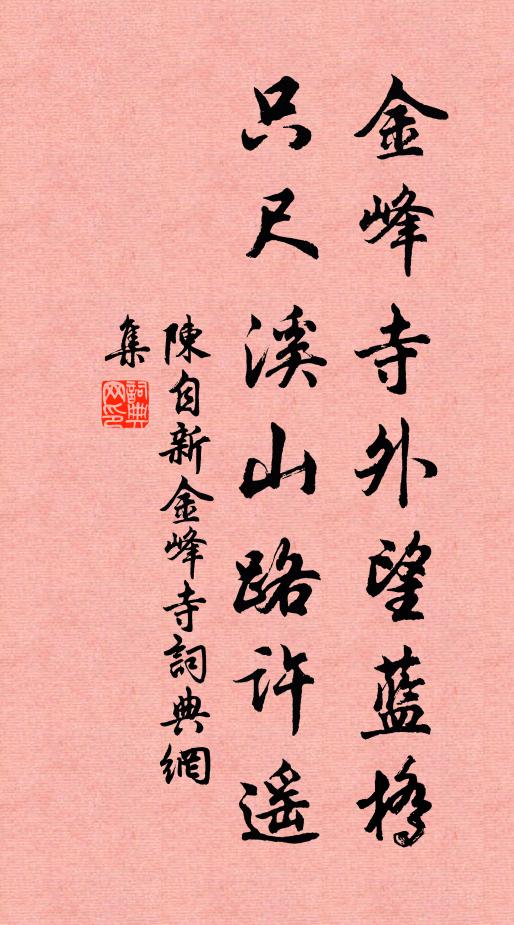 金峰寺外望藍橋
只尺溪山路許遥
陳自新金峰寺詞典網
集
詞典網印